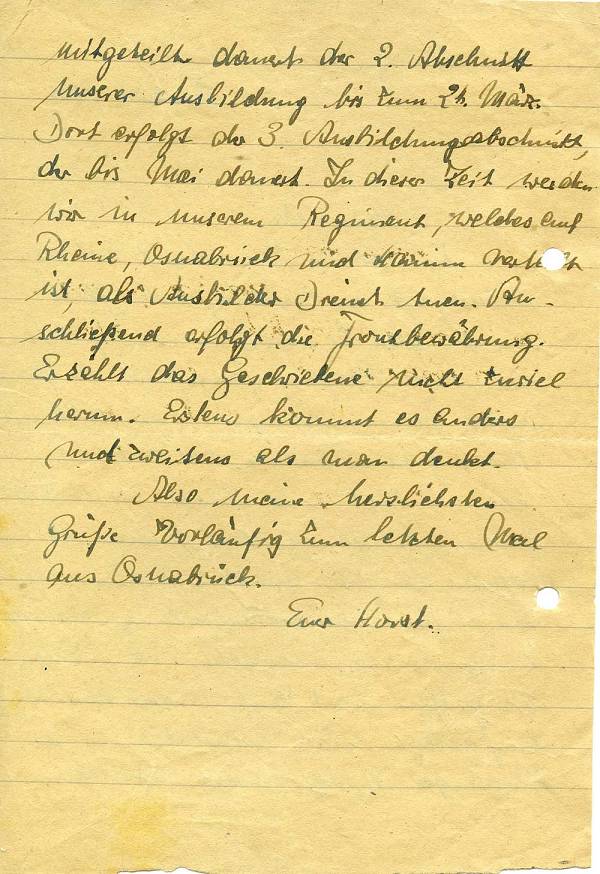 mitgeteilt dauert der 2. Abschnitt
unserer Ausbildung bis zum 24. März.
Dort erfolgt der 3. Ausbildungsabschnitt,
der bis Mai dauert. In dieser Zeit werden
wir in unserem Regiment, welches auf
Rheine, Osnabrück und verteilt
ist, als Ausbilder Dienst tuen. An-
schließend erfolgt die Frontbewährung.
Erzählt das Geschriebene nicht zuviel
herum. Erstens kommt es anders
und zweitens als man denkt.
Also meine herzlichsten
Grüße vorläufig zum letzten Mal
aus Osnabrück.
Euer Horst.